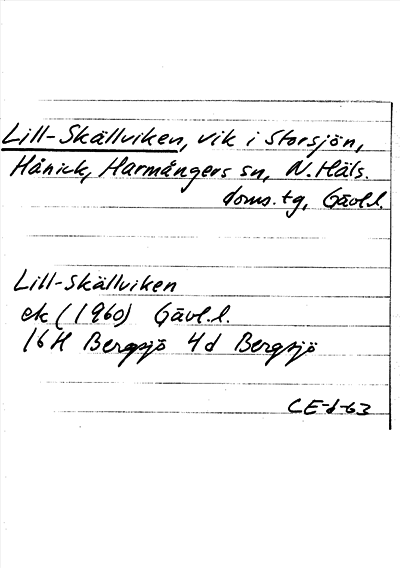 Lill-Skällviken, vik i Storsjön,
Hånick, Harmångers sn, N. Häls.
doms. tg, Gävl.l.
Lill-Skällviken
ek (1960) Gävl.l.
16H Bergsjö 4d Bergsjö
CE-d-63